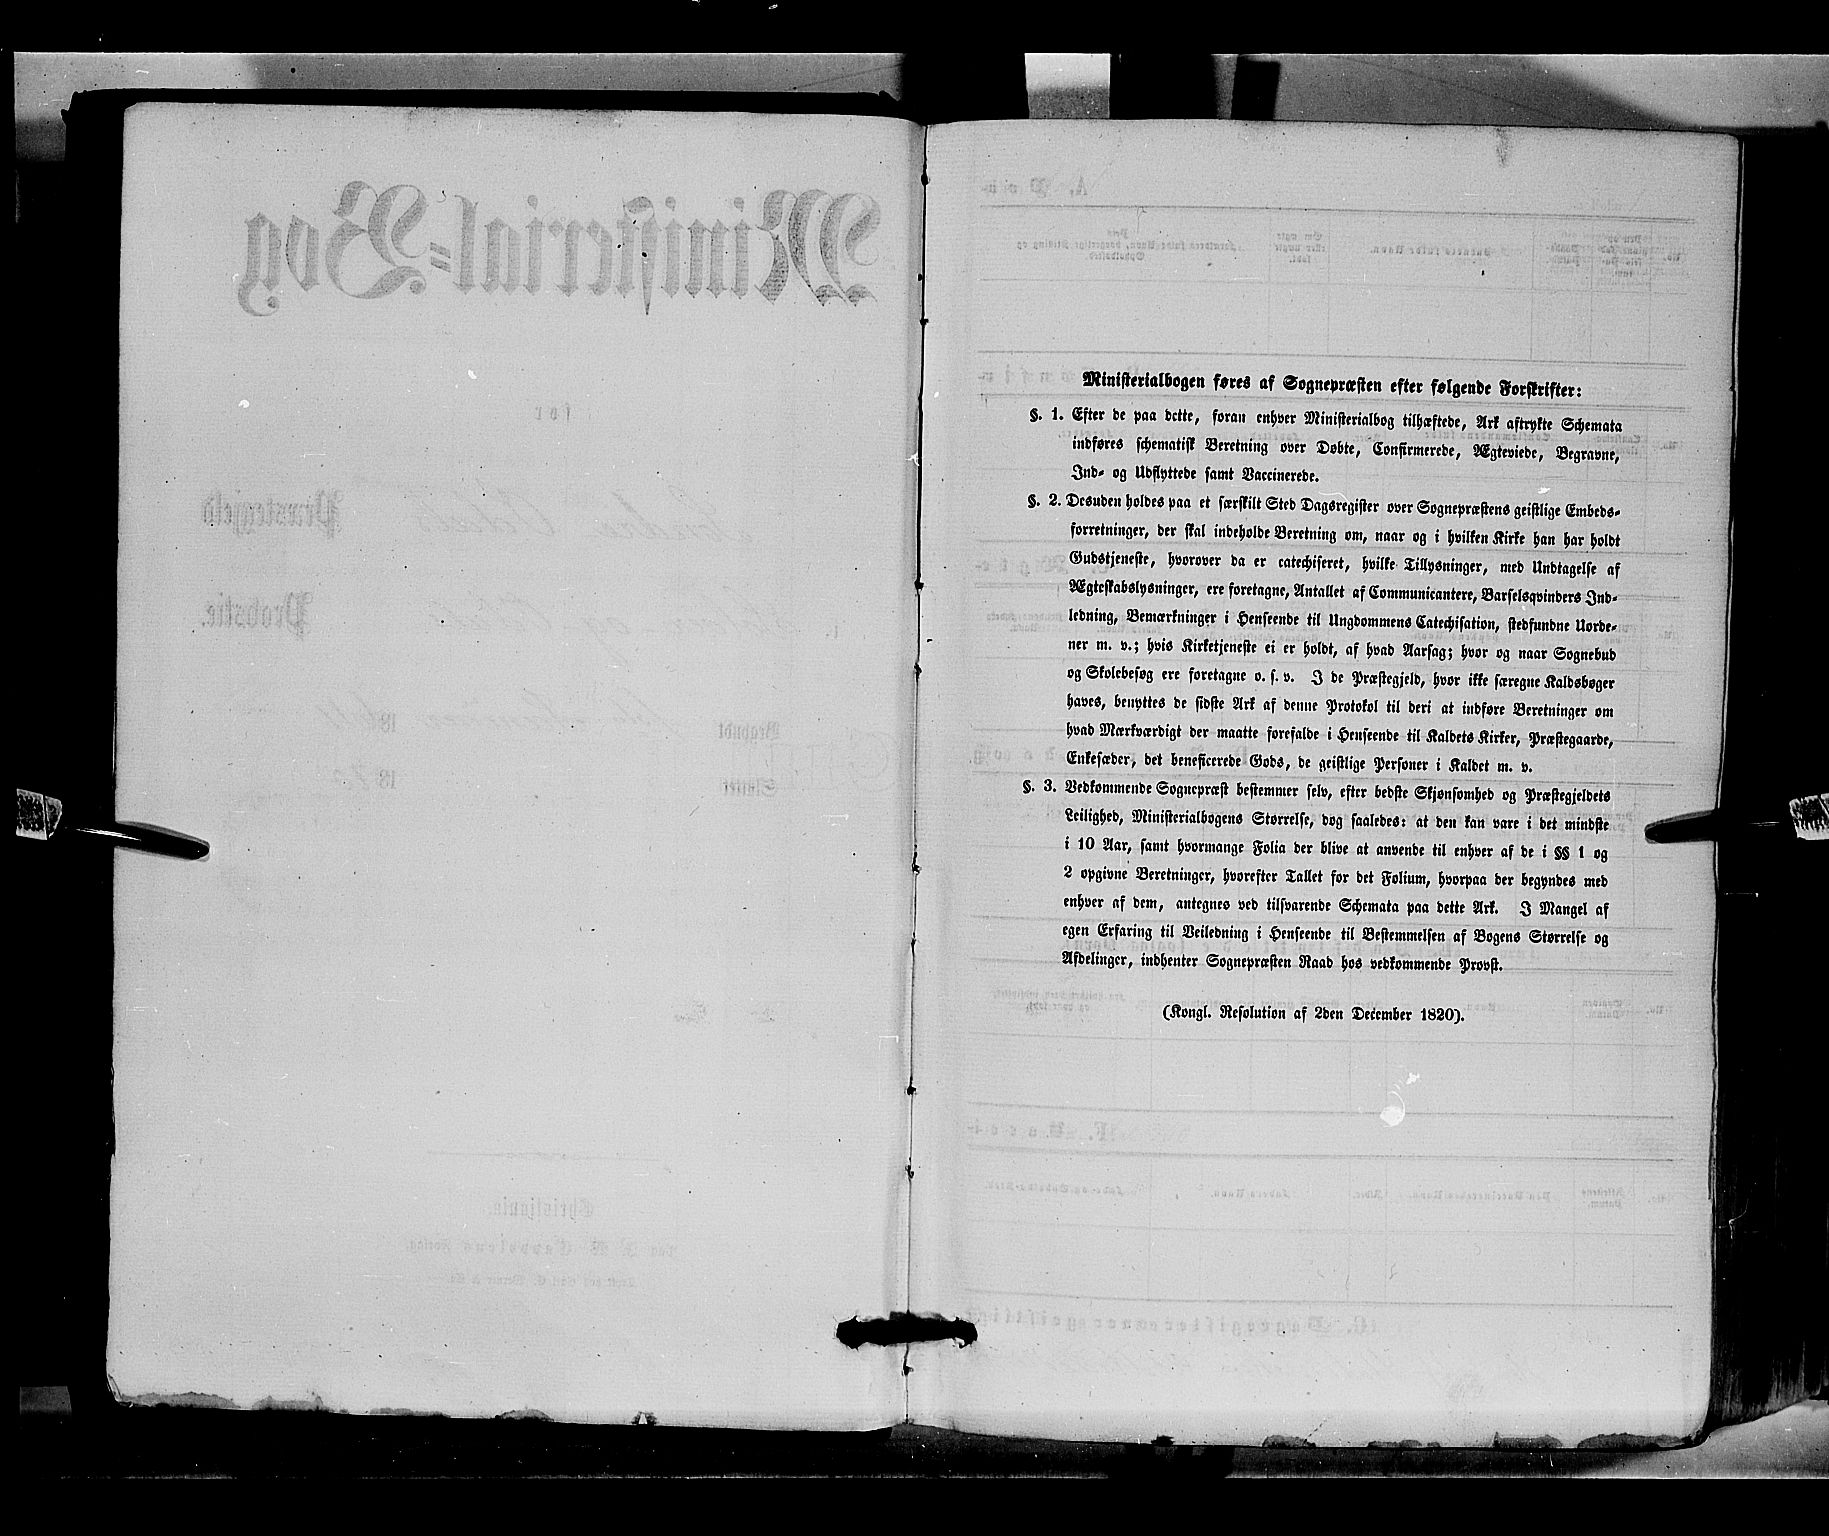 Ministerialbogen føres af Sognepræsten efter følgende Forskrifter:
§. 1. Efter de paa dette, foran enhver Ministerialbog tilhæftede, Ark aftrykte Schemata
indføres schematisk Beretning over Døbte, Confirmerede, Ægteviede, Begravne,
Ind- og Udflyttede samt Vaccinerede.
§. 2. Desuden holdes paa et særskilt Sted Dagsregister over Sognepræstens geistlige Embeds-
forretninger, der skal indeholde Beretning om, naar og i hvilken Kirke han har holdt
Gudstjeneste, hvorover da er catechiseret, hvilke Tillysninger, med Undtagelse af
Ægteskabslysninger, ere foretagne, Antallet af Communicantere, Barselsqvinders Ind-
ledning, Bemærkninger i Henseende til Ungdommens Catechisation, stedfundne Uorde-
ner m. v.; hvis Kirketjeneste ei er holdt, af hvad Aarsag; hvor og naar Sognebud
og Skolebesøg ere foretagne o. s. v. I de Præstegjeld, hvor ikke særegne Kaldsbøger
haves, benyttes de sidste Ark af denne Protokol til deri at indføre Beretninger om
hvad Mærkværdigt der maatte forefalde i Henseende til Kaldets Kirker, Præstegaarde,
Enkesæder, det beneficerede Gods, de geistlige Personer i Kaldet m. v.
§. 3. Vedkommende Sognepræst bestemmer selv, efter bedste Skjønsomhed og Præstegjeldets
Leilighed, Ministerialbogens Størrelse, dog saaledes: at den kan vare i det mindste
i 10 Aar, samt hvormange Folia der blive at anvende til enhver af de i §§ 1 og
2 opgivne Beretninger, hvorefter Tallet for det Folium, hvorpaa der begyndes med
enhver af dem, antegnes ved tilsvarende Schemata paa dette Ark. I Mangel af
egen Erfaring til Veiledning i Henseende til Bestemmelsen af Bogens Størrelse og
Afdelinger, indhenter Sognepræsten Raad hos vedkommende Provst.
(Kongl. Resolution af 2den December 1820).